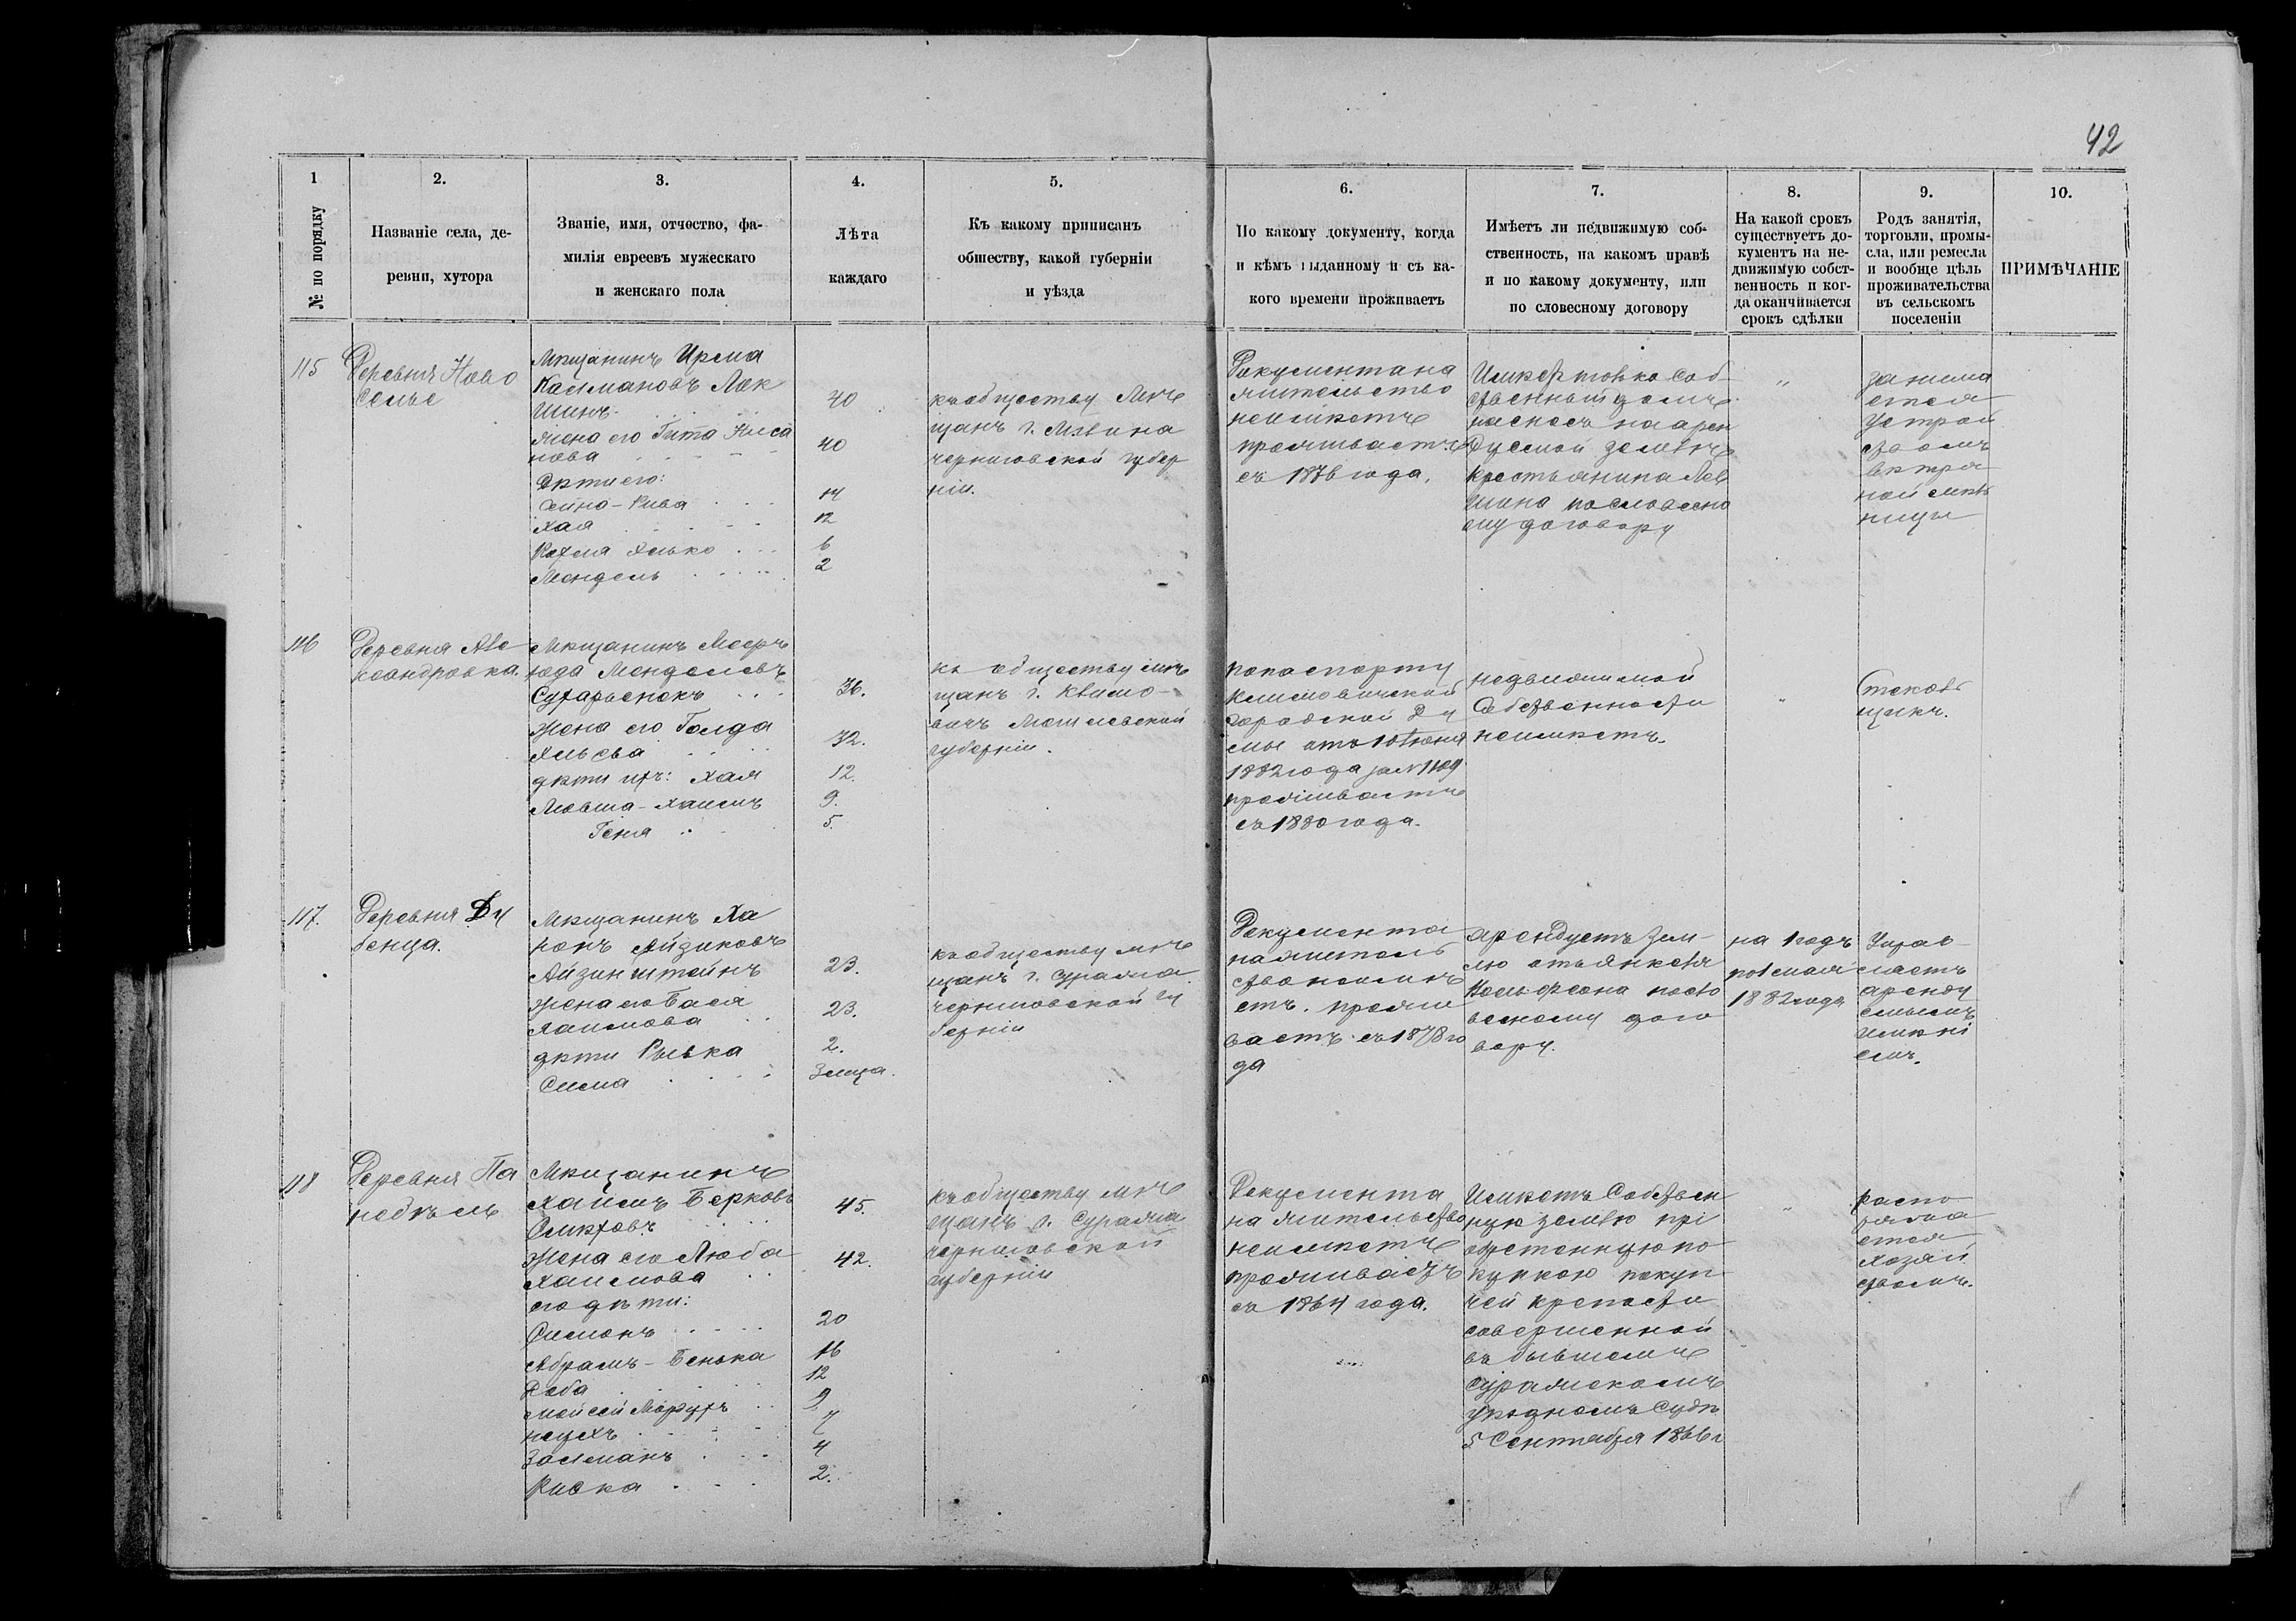 42
1
№ по порядку
2.
Названіе села, де-
ревни, хутора
3.
Званіе, имя, отчество, фа-
милія евреевъ мужескаго
и женскаго пола
4.
Лѣта
каждаго
5.
Къ какому приписанъ
обществу, какой губерніи
и уѣзда
6.
По какому документу, когда
и кѣмъ выданному и съ ка-
кого времени проживаетъ
7.
Имѣетъ ли недвижимую соб-
ственность, на какомъ правѣ
и по какому документу, или
по словесному договору
8.
На какой срокъ
существуетъ до-
кументъ на не-
движимую собст-
венность и ког-
да оканчивается
срокъ сдѣлки
9.
Родъ занятія,
торговли, промы-
сла, или ремесла
и вообще цѣль
проживательства
въ сельскомъ
поселеніи
10.
ПРИМѢЧАНІЕ
115
Деревня Ново
селье
Мѣщанинъ Ирма
Калмановъ Лок
шинъ
жена его Гита Ниса
нова
Дѣти его:
Сейна-Рива
Хая
Рахмя Хилько
Мендель
40
40
14
12
6
2
къ обществу мѣ
щанъ г. Мглина
черниговской губер
ніи.
Документа на
жительство
неимѣетъ
проживаетъ
съ 1876 года.
Имѣетъ только соб-
ственный домъ
на арен
дуемой землѣ
крестьянина Лев
шина по словесно
му договору
"
занима
ется
устрой
ствомъ
вѣтря
ной мель
ницы
116
Деревня Але
ксандровка.
Мѣщанинъ Мееръ
Юда Менделевъ
Сухаренокъ
жена его Голда
дѣти ихъ: Хая
Мовша-Хаимъ
Геня
36.
32.
12.
9.
5.
къ обществу мѣ
щанъ г. Климо-
вичъ Могилевской
губерніи.
по паспорту
Климовичской
городской Ду
мы отъ 10 Июня
1882 года за №1109
проживаетъ
съ 1880 года.
недвижимой
собственности
неимѣетъ.
"
Стеколь
щикъ.
117.
Деревня Ду
бенца.
Мѣщанинъ Ха
ронъ Айзиковъ
Айзинштейнъ
жена его Бася
Хаимова
дѣти Рывка
Сима
23.
23.
2.
3 мца.
къ обществу мѣ
щанъ г. Суража
черниговской гу
берніи
Документа
на житель
ство неимѣ
етъ. прожи
ваетъ съ 1878 го
да
арендуетъ зем-
лю отъ
по сло
весному дого
вору.
на 1 годъ
по 1 мая
1882 года
Управ
ляетъ
аренду
емымъ
имѣні
емъ.
118
Деревня Па
Мѣщанинъ
Хаимъ Берковъ
жена его Люба
Хаимова
его дѣти:
Симонъ
Абрамъ-Бенька
Доба
Залманъ
Ривка
45.
42.
20
16
12
9
7
4
2.
къ обществу мѣ
щанъ г. Суража
черниговской
губерніи
Документа
на жительство
неимѣетъ
проживаетъ
съ 1864 года.
Имѣетъ собствен
ную землю прі
обретенную по
купкою по куп
чей крепости
совершенной
въ бывшемъ
Суражскомъ
уѣздномъ Судѣ
5 Сентября 1866 г
"
распо
ряжа
ется
хозяй
ствомъ.